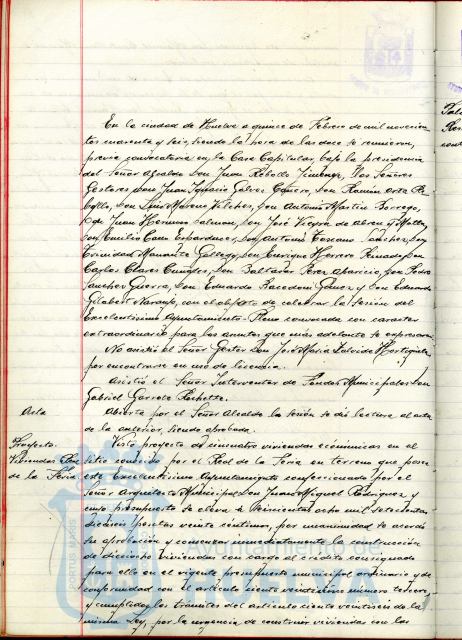 En la ciudad de Huelva a quince de Febrero de mil novecien-
tos cuarenta y seis, siendo la hora de las doce se reunieron,
previa convocatoria en la Casa Capitular, bajo la presidencia
del Señor Alcalde Don Juan Rebollo Jiménez, los Señores
Gestores Don Juan Ignacio Gálvez Cañero, Don Ramón
Don Luis Moreno Don Antonio Martín Borrego,
Don Juan Hermoso Don José de Abreu
Don Emilio Cano Don Antonio Toscano Sánchez, Don
Trinidad Gallego, Don Enrique Herrero Don
Carlos Don Baltasar Pérez Aparicio, Don Pedro
Sánchez Guerra, Don Eduardo Gómez y Don Eduardo
Gilabert Naranjo, con el objeto de celebrar la sesión del
Excelentísimo Ayuntamiento Pleno convocada con carácter
extraordinario para los asuntos que más adelante se expresarán.
No asistió el Señor Gestor Don José María
por encontrarse en uso de licencia.
Asistió el Señor Interventor de Fondos Municipales Don
Gabriel
Acta
Abierta por el Señor Alcalde la sesión se dió lectura al acta
de la anterior, siendo aprobada.
Proyecto.
Viviendas Real
de la Feria
Visto proyecto de cincuenta viviendas económicas en el
sitio conocido por el Real de la Feria en terreno que posee
este Excelentísimo Ayuntamiento confeccionado por el
Señor Arquitecto Municipal Don Juan Miguel Rodríguez y
cuyo presupuesto se eleva a seiscientas ocho mil setecientas
dieciséis pesetas veinte céntimos, por unanimidad se acordó
su aprobación y comenzar inmediatamente la construcción
de dieciocho viviendas con cargo al crédito consignado
para ello en el vigente presupuesto municipal ordinario y de
conformidad con el artículo ciento veinticinco número tercero,
y cumplidos los trámites del artículo ciento veintiséis de la
misma Ley, por la urgencia de construir viviendas con las